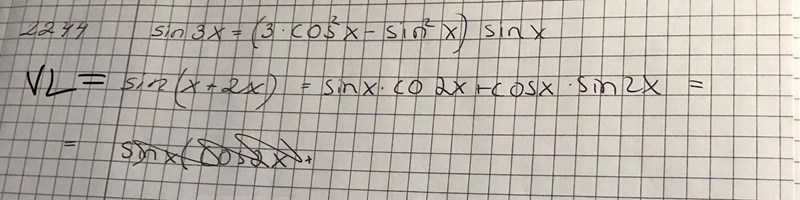 2244 sin 3x = (3·cos²x - sin²x) sinx
VL = sin(x+2x) = sinx·co2x+cosx·sin2x =
= sinx(cos2x)+